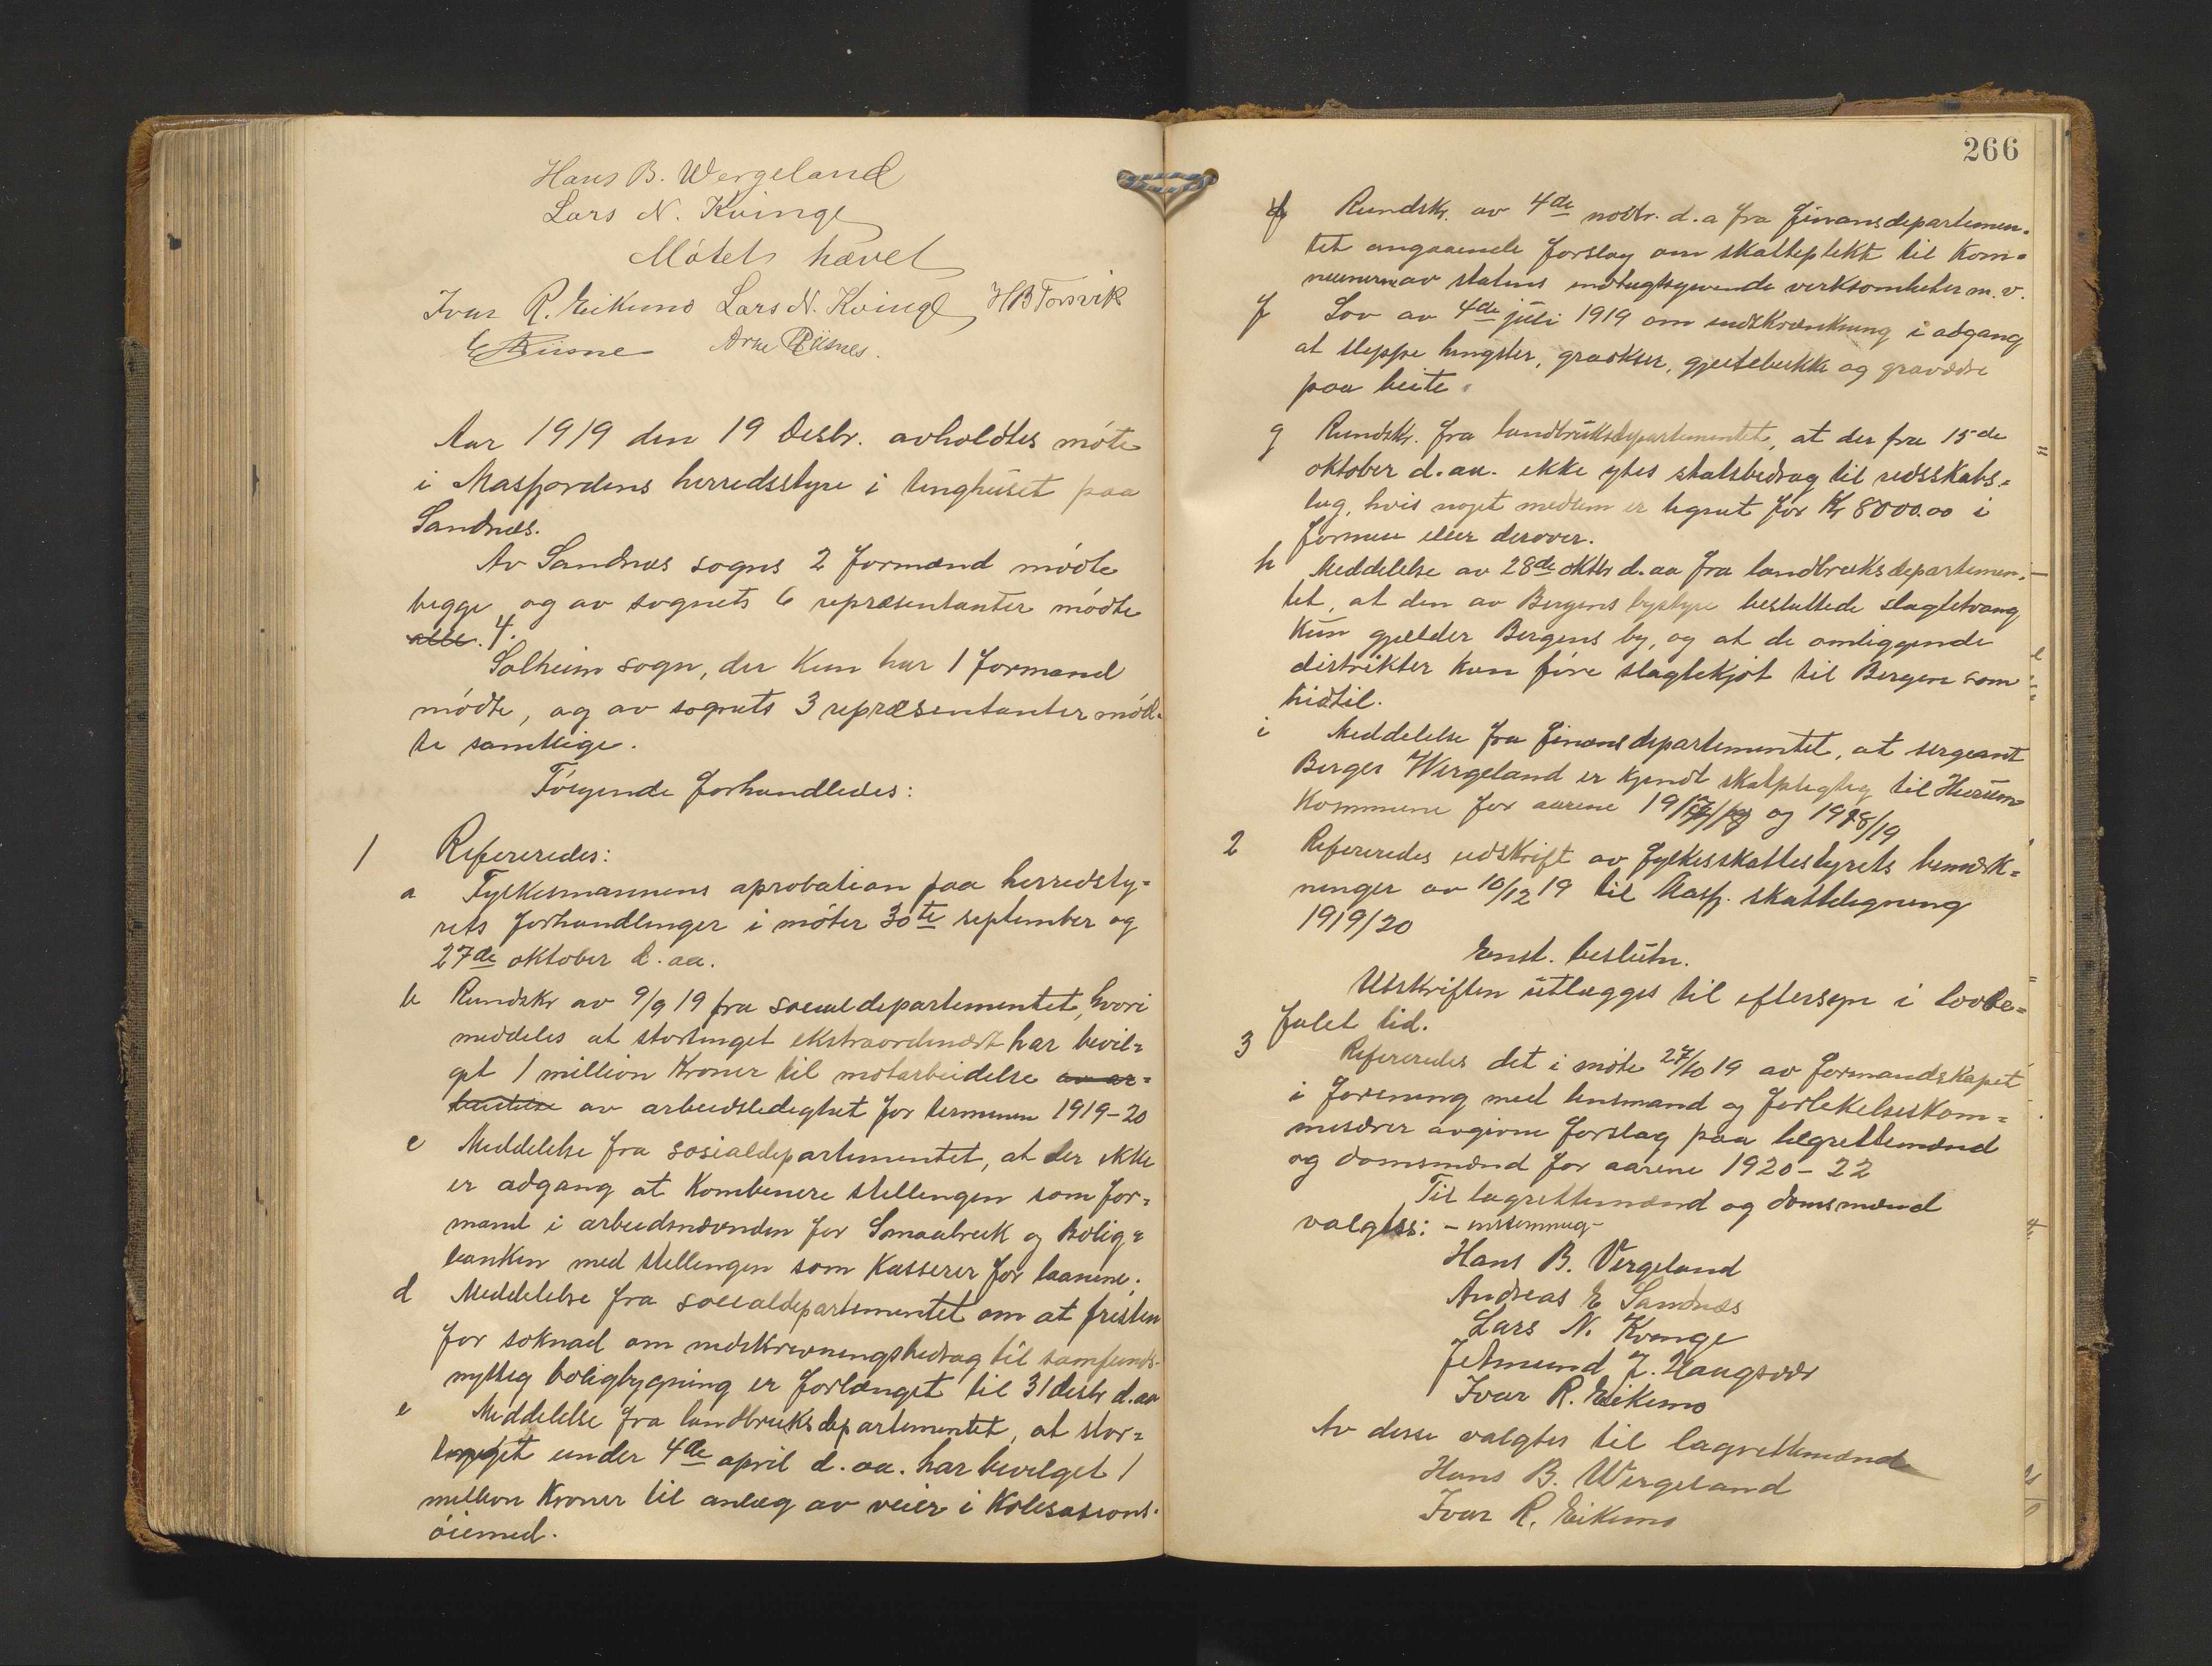 Hans B. Wergeland
Lars N. Kvinge
Mötet hævet
Ivar R. Eikemo Lars N. Kvinge HB Torsvik
Arne Riisnes.
Aar 1919 den 19 Desbr. avholdtes möte
i Masfjordens herredsstyre i tinghuset paa
Sandnæs.
Av Sandnæs sogns 2 formænd mödte
begge og av sognets 6 repræsentanter mödte
alle. 4.
Solheim sogn, der kun har 1 formand
mödte, og av sognets 3 repræsentanter möd-
te samtlige.
Fölgende forhandledes:
1 Refereredes:
a Fylkesmannens aprobation paa herredsty-
rets forhandlinger i möter 30te september og
27de oktober d. aa.
b Rundskr av 9/9 19 fra socialdepartementet, hvori
meddeles at stortinget ekstraordinært har bevil-
get 1 million Kroner til motarbeidelse av ar-
av arbeidsledighet for terminen 1919-20
c Meddelelse fra sosialdepartementet, at der ikke
er adgang at kombinere stillingen som for-
mand i arbeidsnævnden for Smaabruk og Bolig-
banken med stillingen som Kasserer for laanene.
d Meddelelse fra socialdepartementet om at fristen
for söknad om nedskrivningsbidrag til samfunds-
nyttig boligbygning er forlænget til 31 desbr d. aa
e Meddelelse fra landbruksdepartementet, at stor-
tinget under 4de april d. aa. har bevilget 1
million Kroner til anlæg av veier i Kolisations-
öiemed.
266
f Rundskr. av 4de novbr. d. a fra finansdepartemen-
tet angaaende forslag om skatteplikt til Kom-
munerne av statens indtægtsgivende verksomheter m. v.
f Lov av 4de juli 1919 om indskrænkning i adgang
at sleppe hingster, graokser, gjeitebukke og graværer
paa beite.
g Rundskr. fra landbruksdepartementet, at der fra 15de
oktober d. aa. ikke ytes statsbidrag til redskabs-
lag, hvis noget medlem er lignet for Kr 8000.00 i
formue eller derover.
h Meddelelse av 28de oktbr d. aa fra landbruksdepartemen-
tet, at den av Bergens bystyre besluttede slagtetvang
kun gjælder Bergens by, og at de omliggende
distrikter kan före slagtekjöt til Bergen som
hidtil.
i Meddelelse fra finansdepartementet, at sergeant
Berger Wergeland er kjendt skatpligtig til Hurum
Kommune for aarene 1917/18 og 1918/19
2 Refereredes udskrift av fylkesskattestyrets bemærk-
ninger av 10/12 19 til Masfj. skatteligning
1919/20
Enst. beslutn.
Utskriften utlægges til eftersyn i lovbe-
falet tid.
3 Refereredes det i möte 27/10 19 av formandskapet
i forening med lensmand og forlikelseskom-
misærer avgivne forslag paa lagrettemænd
og domsmænd for aarene 1920-22
Til lagrettemænd og domsmænd
valgtes: - enstemmig -
Hans B. Vergeland
Andreas E Sandnæs
Lars N. Kvinge
Jetmund J. Haugsvær
Ivar R. Eikemo
Av disse valgtes til lagrettemænd
Hans B. Wergeland
Ivar R. Eikemo